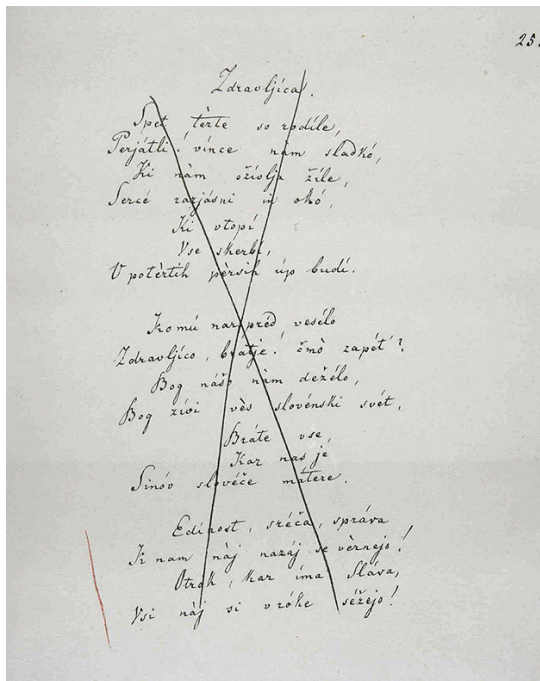 25.
Zdravljíca.
Spet tèrte so rodíle,
Perjátli! vince nàm sladkó,
Ki nàm oživlja žíle,
Sercé razjásni in okó,
Ki vtopí
Vse skerbí,
V potèrtih pèrsih úp budí.
Komú narpréd veselo
Zdravljíco, bratje! čmò zapét'?
Bog nášo nàm deželo,
Bog žívi vès slovénski svét,
Bráte vse,
Kar nas je
Sinóv slovéče mátere.
Edínost, sréča, správa
K nam nàj nazáj se vèrnejo!
Otrók, kar íma Sláva,
Vsi nàj si v róke séžejo!